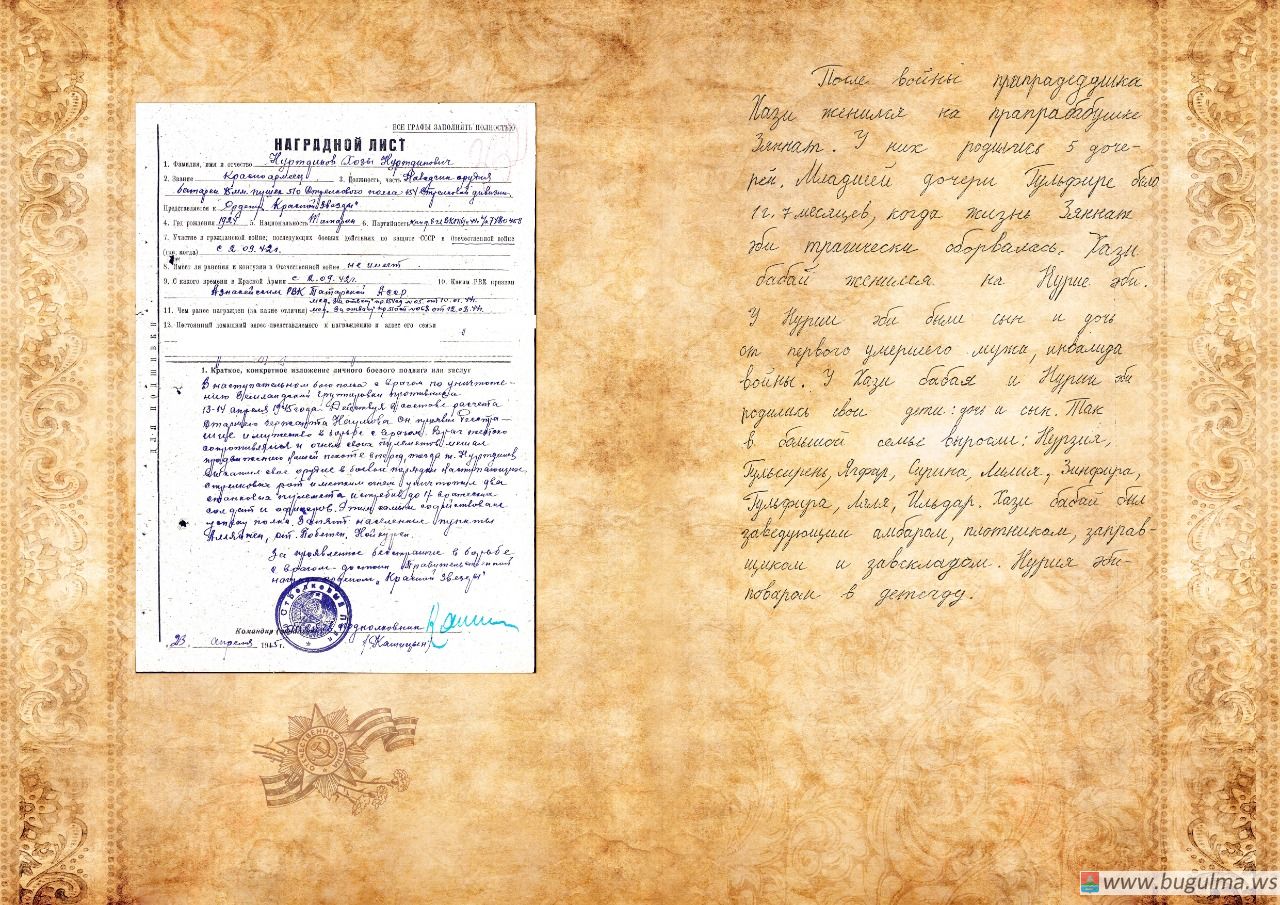 ВСЕ ГРАФЫ ЗАПОЛНЯТЬ ПОЛНОСТЬЮ
НАГРАДНОЙ ЛИСТ
1. Фамилия, имя и отчество Нуртдинов Хозы Нуртдинович
2. Звание Красноармеец 3. Должность, часть Наводчик орудия
батареи пушек 510 Стрелкового полка 154 Стрелковой дивизии
Представляется к Ордену „Красной Звезды"
4. Год рождения 5. Национальность Татарин 6. Партийность
7. Участие в гражданской войне, последующих боевых действиях по защите СССР и Отечественной войне
(где, когда) с 2.09.42г.
8. Имеет ли ранения и контузии в Отечественной войне не имеет
9. С какого времени в Красной Армии с 2.09.42г. 10. Каким РВК призван
Азнакаевским РВК Татарской АССР
мед. За отвагу от 10.01.44г.
11. Чем ранее награжден (за какие отличия) мед. За отвагу от 12.08.44г.
12. Постоянный домашний адрес представляемого к награждению и адрес его семьи
1. Краткое, конкретное изложение личного боевого подвига или заслуг
В наступательном бою полка с врагом по уничтоже-
нию Земландской группировки противника
13-14 апреля 1945 года. Действуя в составе расчета
Старшего сержанта Наумова он проявил
и мужество в борьбе с врагом. Враг жестоко
сопротивлялся и огнем своих пулеметов мешал
продвижению нашей пехоте вперед, тогда т. Нуртдинов
выкатил свое орудие в боевой порядок наступающих
стрелковых рот и метким огнем уничтожил два
станковых пулемета и истребил до 17 вражеских
солдат и офицеров. Этим самым содействовал
успеху полка. Заняты населенные пункты
За проявленное бесстрашие в борьбе
с врагом – достоин Правительственной
награды орденом „Красной Звезды"
Командир подполковник
„23" апреля 1945 г.
После войны прапрадедушка
Хази женился на прапрабабушке
Зяннат. У них родились 5 доче-
рей. Младшей дочери Гульфире было
1 г. 7 месяцев, когда жизнь Зяннат
эби трагически оборвалась. Хази
бабай женился на Нурие эби.
У Нурии эби были сын и дочь
от первого умершего мужа, инвалида
войны. У Хази бабая и Нурии эби
родились свои дети: дочь и сын. Так
в большой семье выросли: Нурзия,
Гульсирень, Ягфар, Сирина, Лилия, Зинфира,
Гульфира, Ляля, Ильдар. Хази бабай был
заведующим амбаром, плотником, заправ-
щиком и завскладом. Нурия эби-
поваром в детсаду.
ОТЕЧЕСТВЕННАЯ ВОЙНА
www.bugulma.ws